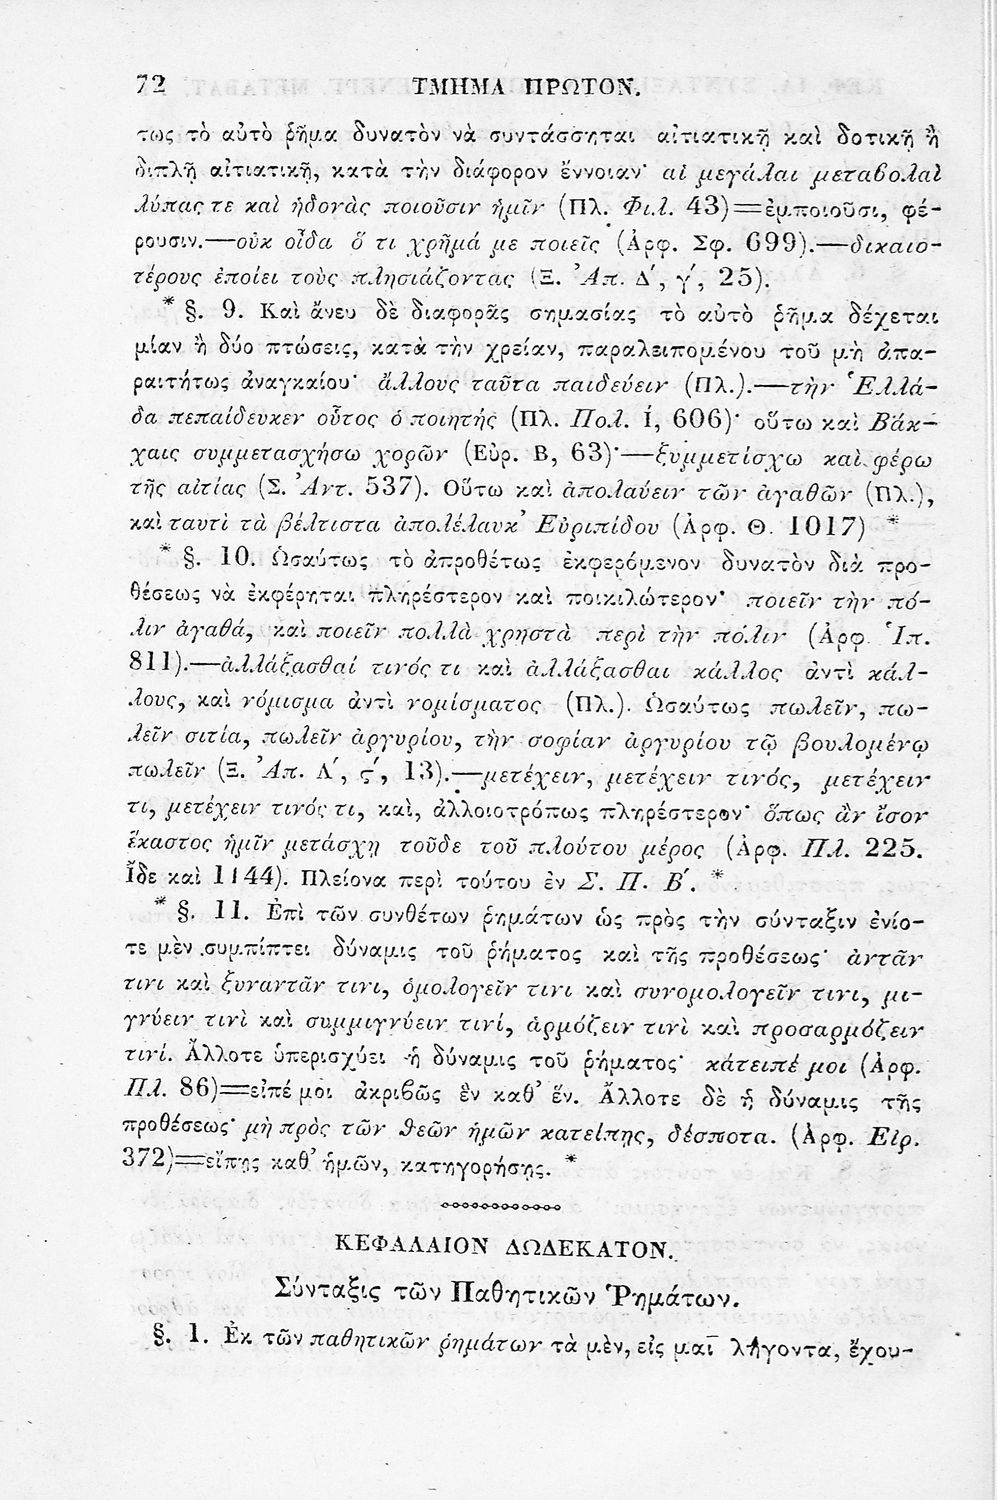 72 ΤΜΗΜΑ ΠΡΩΤΟΝ.
τως τὸ αὐτὸ ῥῆμα δυνατὸν νὰ συντάσσηται αἰτιατικῇ καὶ δοτικῇ ἢ
διπλῇ αἰτιατικῇ, κατὰ τὴν διάφορον ἔννοιαν· αἱ μεγάλαι μεταβολαὶ
λύπας τε καὶ ἡδονὰς ποιοῦσιν ἡμῖν (Πλ. Φιλ. 43)=ἐμποιοῦσι, φέ-
ρουσιν.—οὐκ οἶδα ὅ τι χρῆμά με ποιεῖς (Ἀρφ. Σφ. 699).—δικαιο-
τέρους ἐποίει τοὺς πλησιάζοντας (Ξ. Ἀπ. Δ΄, γ΄, 25).
* §. 9. Καὶ ἄνευ δὲ διαφορᾶς σημασίας τὸ αὐτὸ ῥῆμα δέχεται
μίαν ἢ δύο πτώσεις, κατὰ τὴν χρείαν, παραλειπομένου τοῦ μὴ ἀπα-
ραιτήτως ἀναγκαίου· ἄλλους ταῦτα παιδεύειν (Πλ.).—τὴν Ἑλλά-
δα πεπαίδευκεν οὗτος ὁ ποιητής (Πλ. Πολ. Ι, 606)· οὕτω καὶ Βάκ-
χαις συμμετασχήσω χορῶν (Εὐρ. Β, 63)·—ξυμμετίσχω καὶ φέρω
τῆς αἰτίας (Σ. Ἀντ. 537). Οὕτω καὶ ἀπολαύειν τῶν ἀγαθῶν (Πλ.),
καὶ ταυτὶ τὰ βέλτιστα ἀπολέλαυκ᾽ Εὐριπίδου (Ἀρφ. Θ. 1017) *
* §. 10. Ὡσαύτως τὸ ἀπροθέτως ἐκφερόμενον δυνατὸν διὰ προ-
θέσεως νὰ ἐκφέρηται πληρέστερον καὶ ποικιλώτερον· ποιεῖν τὴν πό-
λιν ἀγαθά, καὶ ποιεῖν πολλὰ χρηστὰ περὶ τὴν πόλιν (Ἀρφ. Ἱπ.
811).—ἀλλάξασθαί τινός τι καὶ ἀλλάξασθαι κάλλος ἀντὶ κάλ-
λους, καὶ νόμισμα ἀντὶ νομίσματος (Πλ.). Ὡσαύτως πωλεῖν, πω-
λεῖν σιτία, πωλεῖν ἀργυρίου, τὴν σοφίαν ἀργυρίου τῷ βουλομένῳ
πωλεῖν (Ξ. Ἀπ. Α΄, ς΄, 13).—μετέχειν, μετέχειν τινός, μετέχειν
τι, μετέχειν τινός τι, καὶ, ἀλλοιοτρόπως πληρέστερον· ὅπως ἂν ἴσον
ἕκαστος ἡμῖν μετάσχῃ τοῦδε τοῦ πλούτου μέρος (Ἀρφ. Πλ. 225.
Ἴδε καὶ 1144). Πλείονα περὶ τούτου ἐν Σ. Π. Β΄. *
* §. 11. Ἐπὶ τῶν συνθέτων ῥημάτων ὡς πρὸς τὴν σύνταξιν ἐνίο-
τε μὲν συμπίπτει δύναμις τοῦ ῥήματος καὶ τῆς προθέσεως· ἀντᾶν
τινι καὶ ξυναντᾶν τινι, ὁμολογεῖν τινι καὶ συνομολογεῖν τινι, μι-
γνύειν τινὶ καὶ συμμιγνύειν τινί, ἁρμόζειν τινὶ καὶ προσαρμόζειν
τινί. Ἄλλοτε ὑπερισχύει ἡ δύναμις τοῦ ῥήματος· κάτειπέ μοι (Ἀρφ.
Πλ. 86)=εἰπέ μοι ἀκριβῶς ἓν καθ᾽ ἕν. Ἄλλοτε δὲ ἡ δύναμις τῆς
προθέσεως· μὴ πρὸς τῶν θεῶν ἡμῶν κατείπῃς, δέσποτα. (Ἀρφ. Εἰρ.
372)=εἴπῃς καθ᾽ ἡμῶν, κατηγορήσῃς. *
ΚΕΦΑΛΑΙΟΝ ΔΩΔΕΚΑΤΟΝ.
Σύνταξις τῶν Παθητικῶν Ῥημάτων.
§. 1. Ἐκ τῶν παθητικῶν ῥημάτων τὰ μὲν, εἰς μαι λήγοντα, ἔχου-